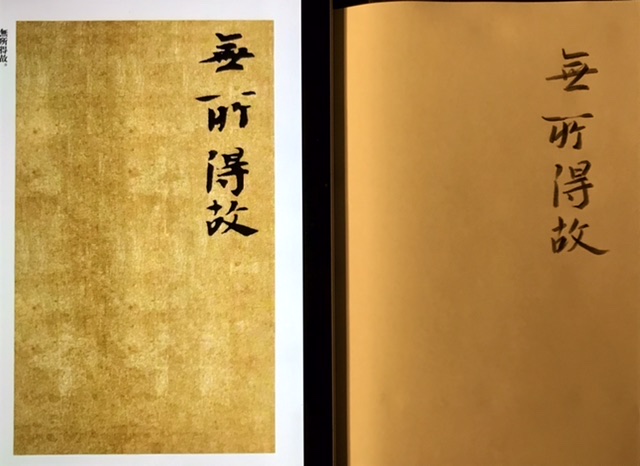 無所得故。
無所得故
無所得故